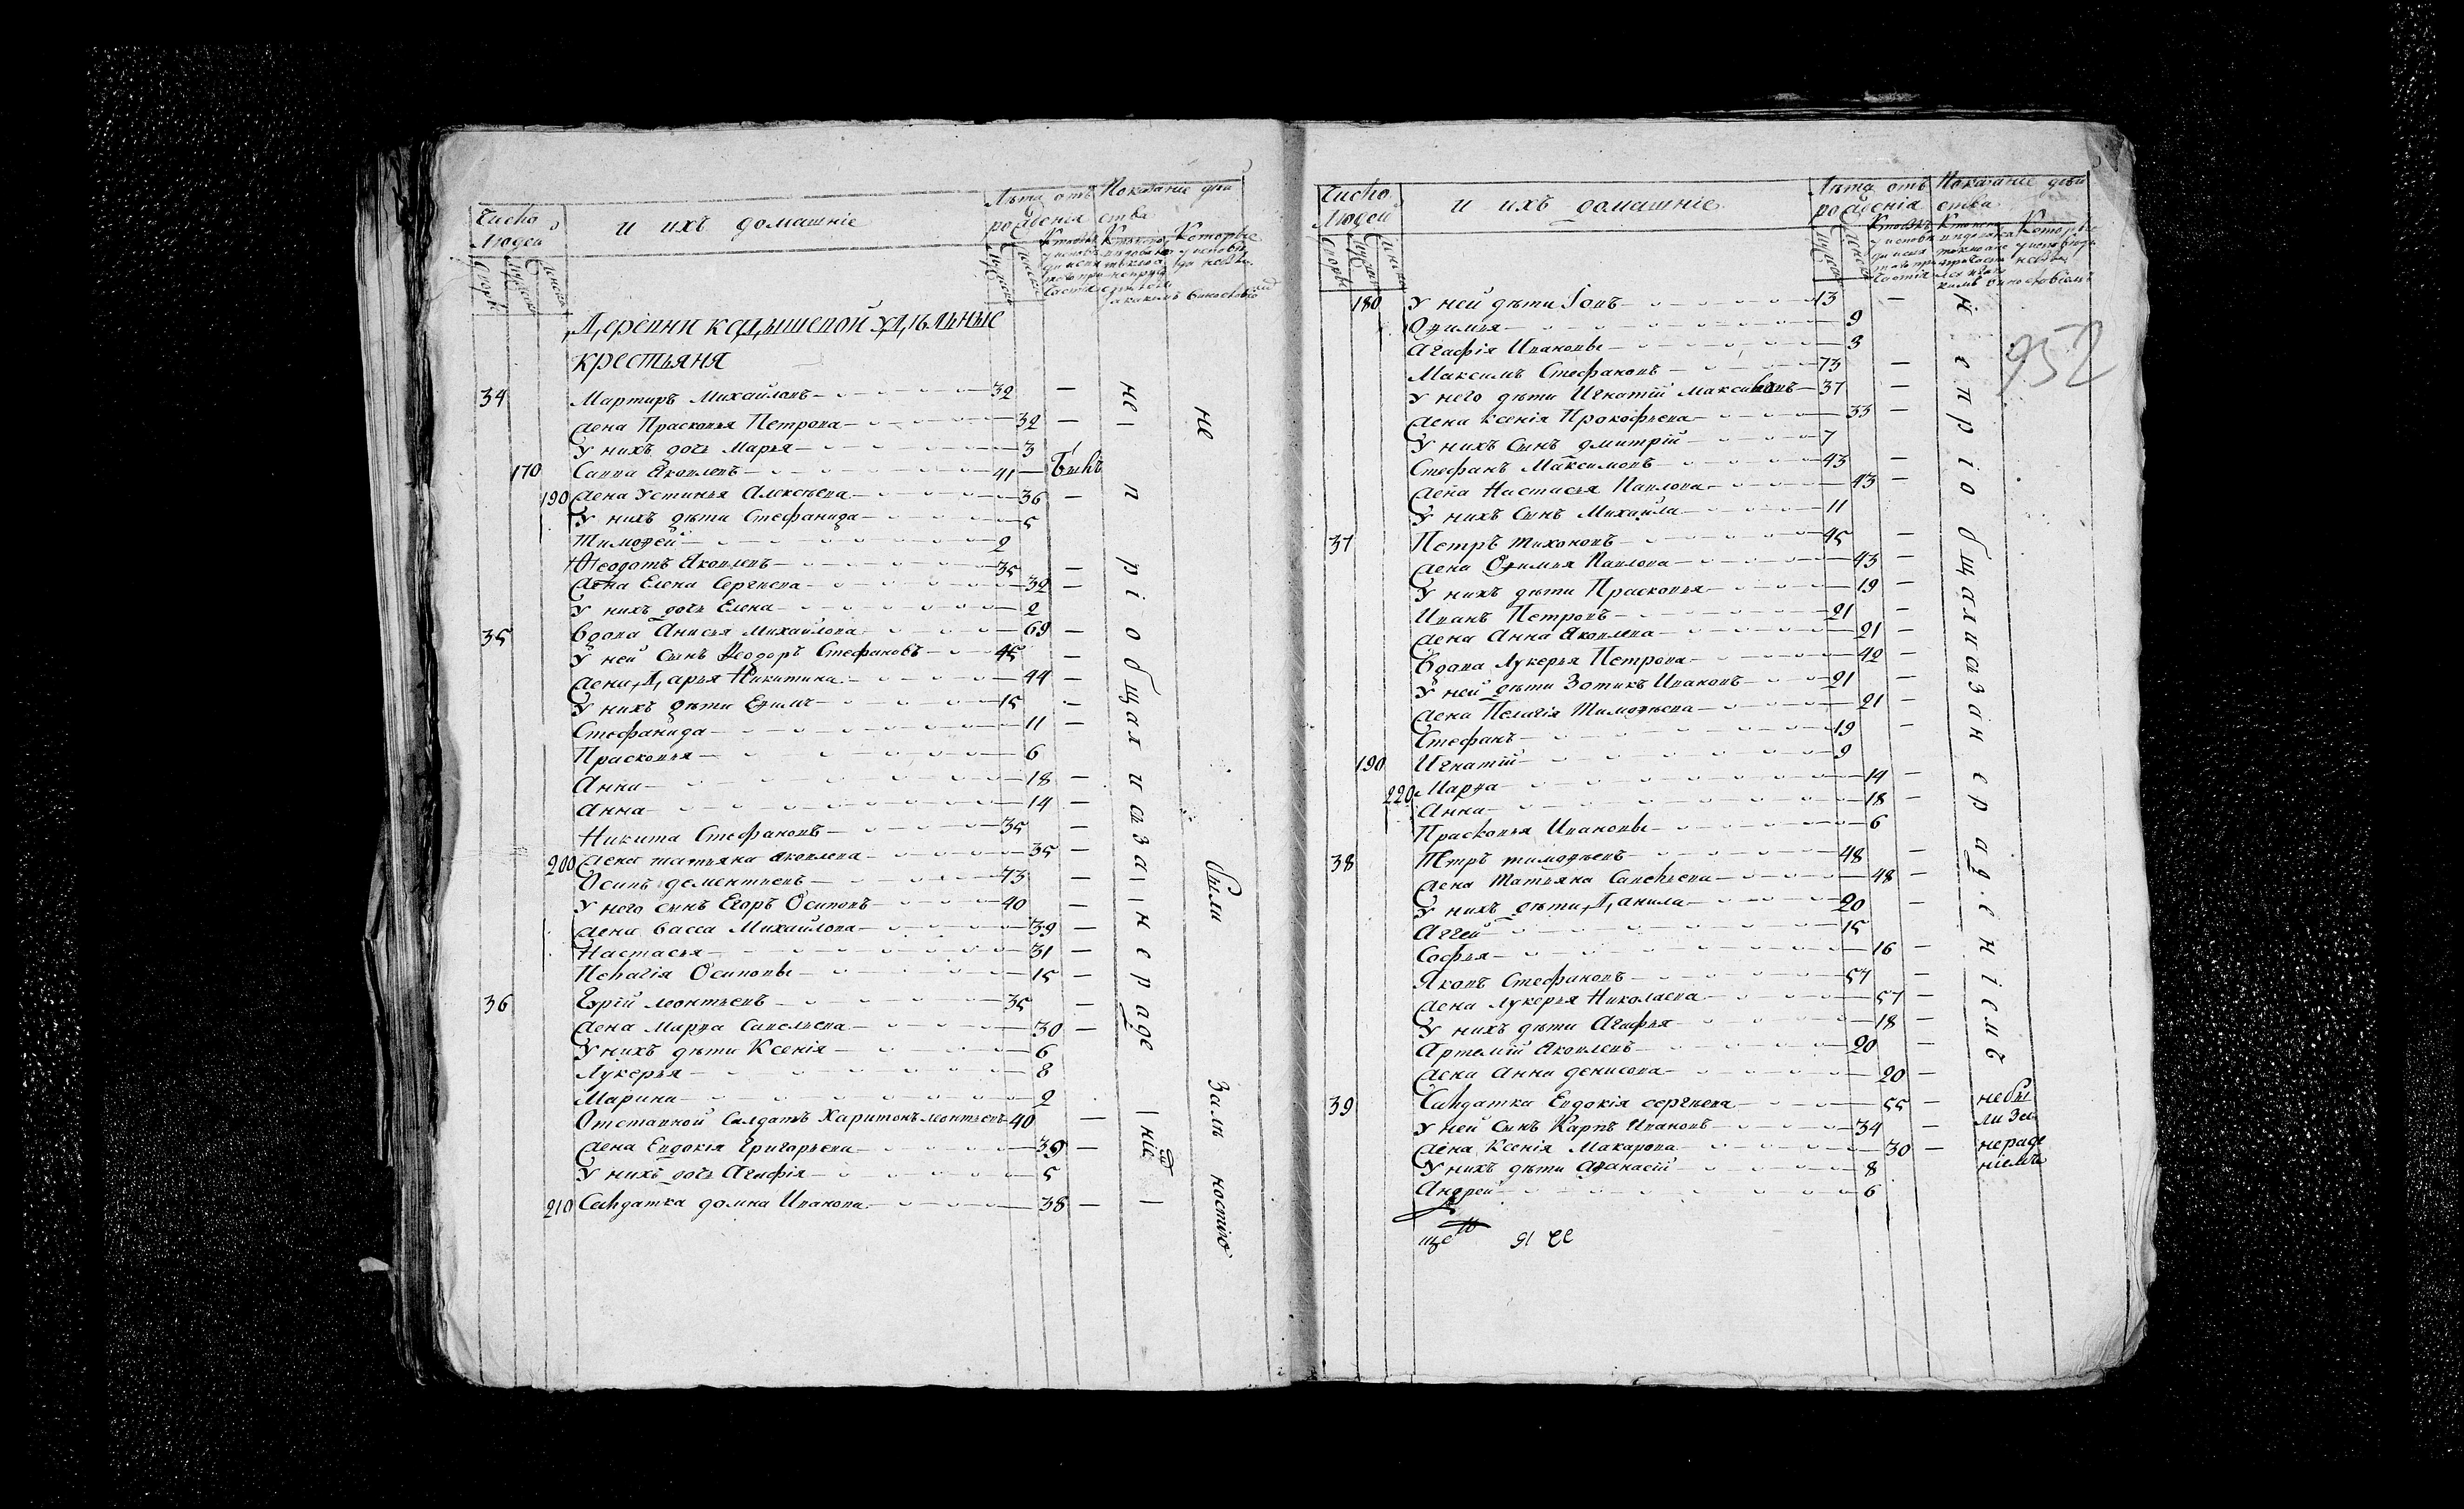 Число Людей
и ихъ домашнiе
Лѣта отъ рожденiя
Показанiе дѣйства
Дворы
Мужеска
Женска
Деревни кадышевой удѣльные
крестьяня
34 Мартиръ Михайловъ 32 —
жена Прасковья Петрова 32 —
У нихъ дочь Марья 3
170 Савва Яковлевъ 41 — былъ
190 жена Устинья Алексѣева 36 —
У нихъ дѣти Стефанида 5
Тимоѳей 2
Ѳеодотъ Яковлевъ 35 —
жена Елена Сергѣева 32 —
У нихъ дочь Елена 2
35 вдова Анисья Михайлова 69 —
У ней сынъ Ѳеодоръ Стефановъ 45 —
жена Дарья Никитина 44 —
У нихъ дѣти Еѳимъ 15 —
Стефанида 11 —
Прасковья 6
Анна 18 —
Анна 14 —
Никита Стефановъ 35 —
200 жена татьяна яковлева 35 —
Осипъ дементьевъ 73 —
У него сынъ Егоръ Осиповъ 40 —
жена васса Михайлова 39 —
Настасья 31 —
Пелагiя Осиповы 15 —
36 леонтьевъ 35 —
жена Марѳа Савельева 30 —
У нихъ дѣти Ксенiя 6
Лукерья 8
Марина 2
Отставной Салдатъ Харитонъ леонтьевъ 40 —
жена Евдокiя Григорьева 39 —
У нихъ дочь Агафiя 5
210 Салдатка домна Иванова 38 —
не прiобщались за нерадѣнiе
не были за малолѣтностiю
Число Людей
и ихъ домашнiе
Лѣта отъ рожденiя
Показанiе дѣйства
952
180 У ней дѣти Iовъ 13 —
Оѳимья 9
Агафiя Ивановы 3
Максимъ Стефановъ 73 —
У него дѣти Игнатiй Максимовъ 37 —
жена ксенiя Прокофьева 33 —
У нихъ сынъ дмитрiй 7
Стефанъ Максимовъ 43 —
жена Настасья Павлова 43 —
У нихъ сынъ Михайла 11
37 Петръ тихоновъ 45 —
жена Оѳимья Павлова 43 —
У нихъ дѣти Прасковья 19 —
Иванъ Петровъ 21 —
жена Анна Яковлева 21 —
Вдова Лукерья Петрова 42 —
У ней дѣти Зотикъ Ивановъ 21 —
жена Пелагiя Тимоѳѣева 21 —
Стефанъ 19 —
190 Игнатiй 9
220 Марѳа 14 —
Анна 18 —
Прасковья Ивановы 6
38 Петръ тимоѳѣевъ 48 —
жена Татьяна Савельева 48 —
У нихъ дѣти Данила 20 —
Аггей 15
Софья 16 —
Яковъ Стефановъ 57 —
жена лукерья Николаева 57 —
У нихъ дѣти Агафья 18 —
Артемiй Яковлевъ 20 —
жена Анна денисова 20 —
39 Салдатка Евдокiя сергѣева 55 —
У ней Сынъ Карпъ Ивановъ 34 —
жена Ксенiя Макарова 30 —
У нихъ дѣти Аѳанасiй 8
Андрей 6
не прiобщались за нерадѣнiемъ
небы
ли за
нерадѣ
нiемъ